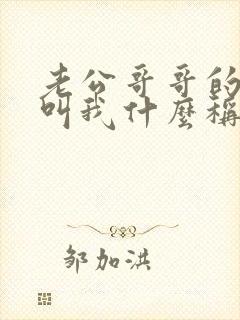 老公哥哥的
叫我什麼稱
邹加洪